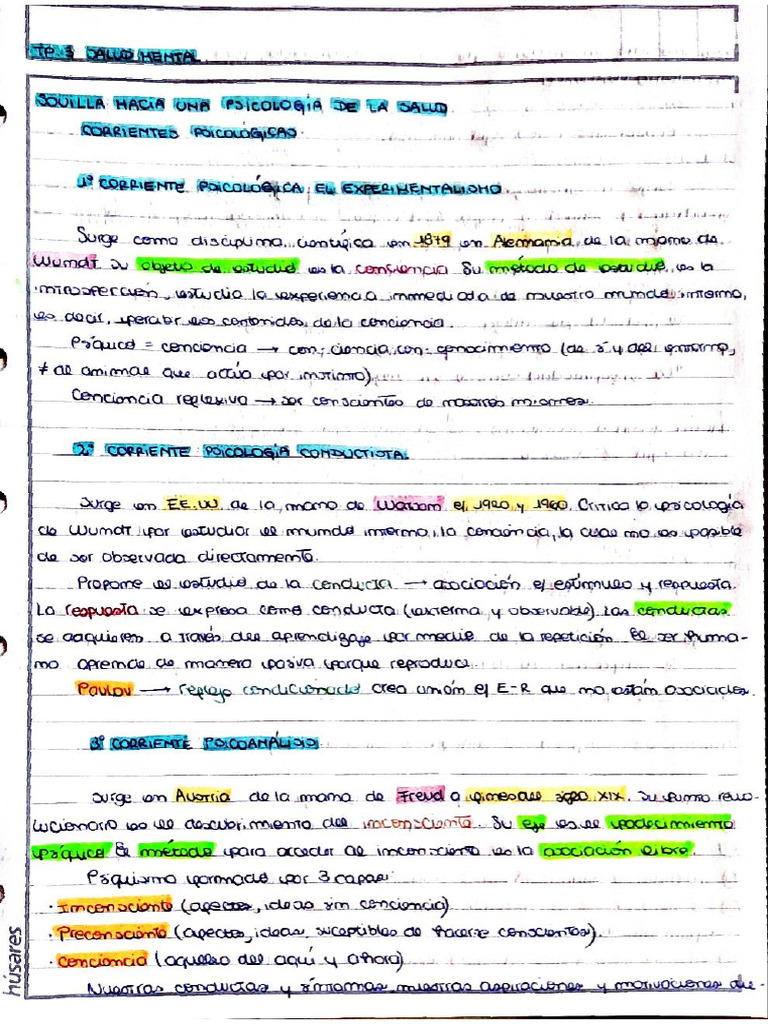 TP. 3 SALUD MENTAL
SQUILLA HACIA UNA PSICOLOGÍA DE LA SALUD
CORRIENTES PSICOLÓGICAS
1º CORRIENTE PSICOLÓGICA EL EXPERIMENTALISMO
Surge como disciplina cientifica en 1879 en Alemania, de la mano de
Wundt. Su objeto de estudio es la conciencia Su método de estudio, es la
introspección, estudia la experiencia inmediata de nuestro mundo interno,
es decir, percibir los contenidos de la conciencia.
Psíquico = conciencia → con; ciencia, con: conocimiento (de sí y del entorno,
≠ al animal que actúa por instinto)
Conciencia reflexiva → ser conscientes de nosotros mismos.
2º CORRIENTE PSICOLOGÍA CONDUCTISTA
Surge en EE.UU de la mano de Watson e/ 1920 y 1960. Critica la psicología
de Wundt por estudiar el mundo interno, la conciencia, la cual no es posible
de ser observada directamente.
Propone el estudio de la conducta → asociación e/ estímulo y respuesta.
La respuesta se expresa como conducta (externa y observable). Las conductas
se adquieren a través del aprendizaje por medio de la repetición El ser huma-
no aprende de manera pasiva porque reproduce.
Paulov → reflejo condicionado crea unión e/ E-R que no están asociados.
3º CORRIENTE PSICOANÁLISIS
Surge en Austria de la mano de Freud a fines del siglo XIX. Su punto revo-
lucionario es el descubrimiento del inconsciente. Su eje es el padecimiento
psíquico El método para acceder al inconsciente es la asociación libre.
Psiquismo formado por 3 capas:
· Inconsciente (afectos, ideas sin conciencia)
· Preconsciente (afectos, ideas, suceptibles de hacerse conscientes).
· Conciencia (aquello del aquí y ahora)
Nuestras conductas y síntomas nuestras aspiraciones y motivaciones de-
húsares